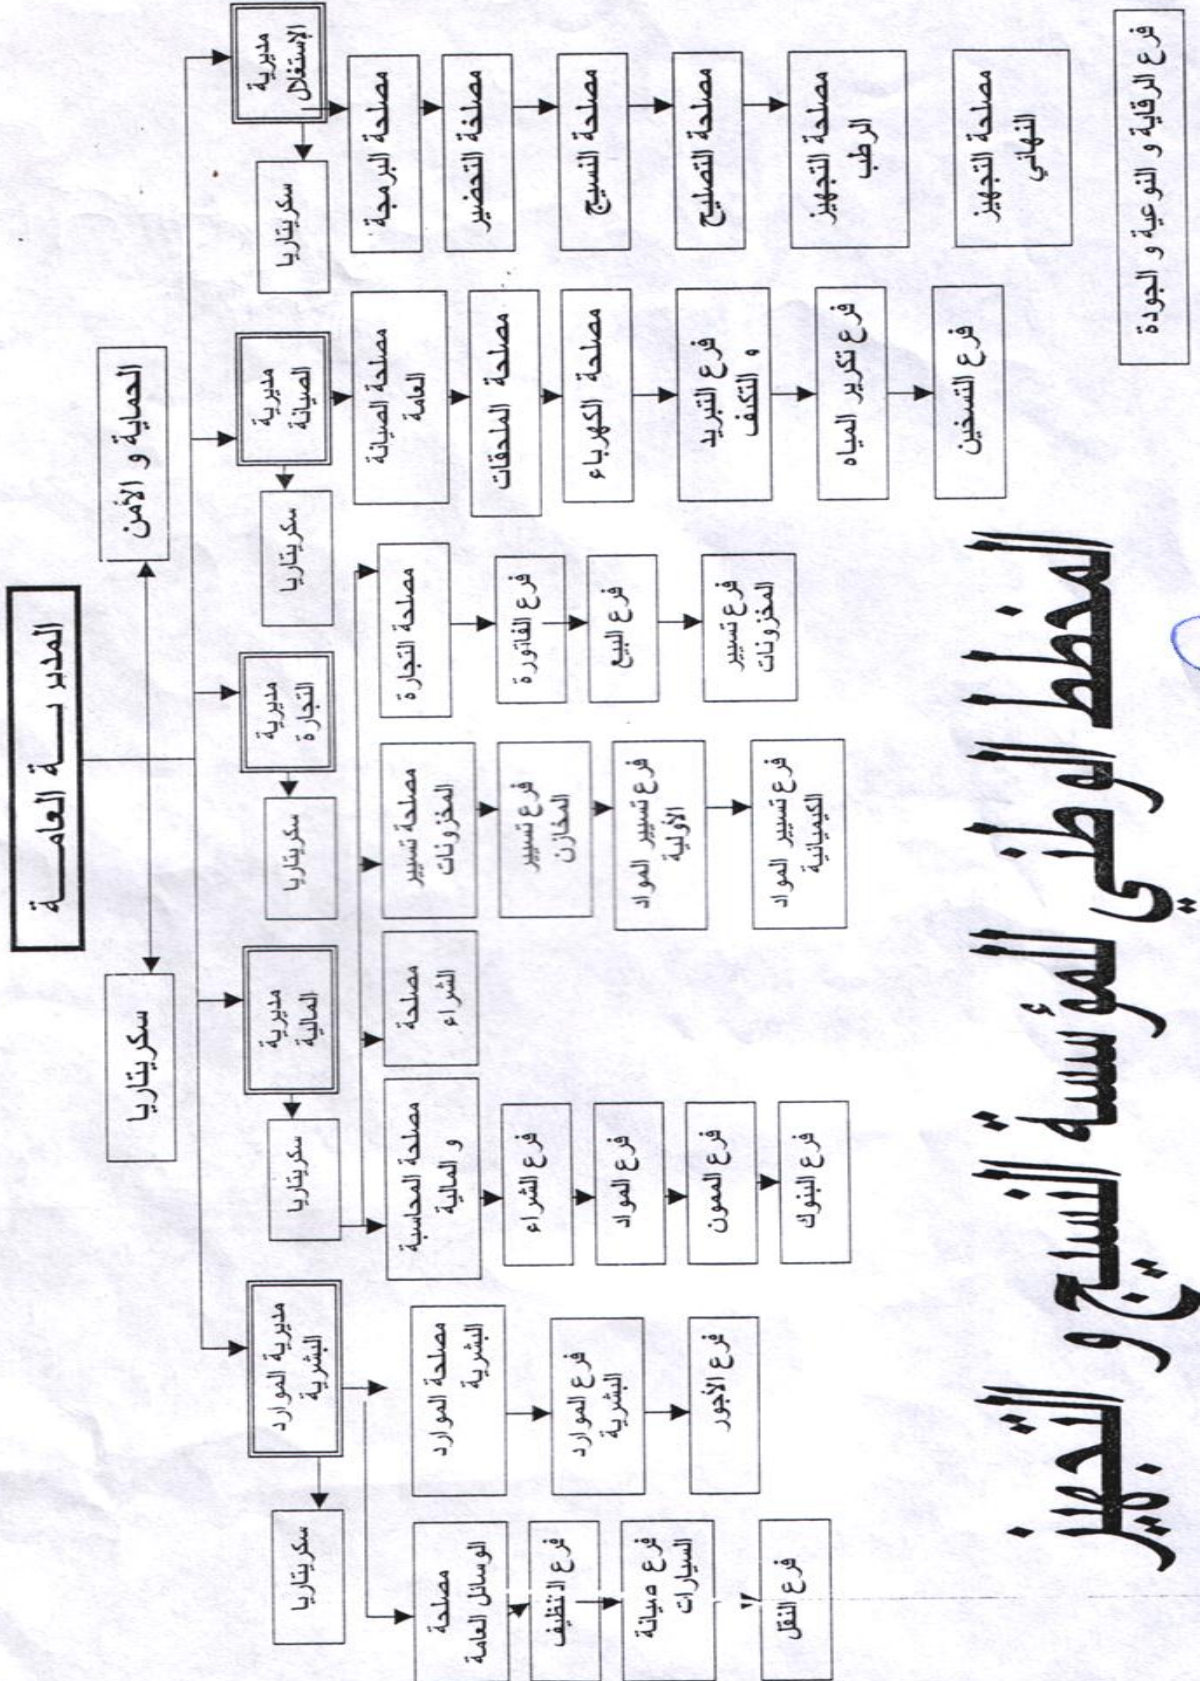 المديريــة العامــــة
الحماية و الأمن
سكريتاريا
مديرية
الإستغلال
سكريتاريا
مصلحة البرمجة
مصلخة التحضير
مصلحة النسيج
مصلحة التصليح
مصلحة التجهيز
الرطب
مصلحة التجهيز
النهائي
فرع الرقابة و النوعية و الجودة
مديرية
الصيانة
سكريتاريا
مصلحة الصيانة
العامة
مصلحة الملحقات
مصلحة الكهرباء
فرع التبريد
و التكيف
فرع تكرير المياه
فرع التسخين
مديرية
التجارة
سكريتاريا
مصلحة التجارة
فرع الفاتورة
فرع البيع
فرع تسيير
المخزونات
مصلحة تسيير
المخزونات
فرع تسيير
المخازن
فرع تسيير المواد
الأولية
فرع تسيير المواد
الكيميائية
مديرية
المالية
سكريتاريا
مصلحة
الشراء
مصلحة المحاسبة
و المالية
فرع الشراء
فرع المواد
فرع الممون
فرع البنوك
مديرية الموارد
البشرية
سكريتاريا
مصلحة الموارد
البشرية
فرع الموارد
البشرية
فرع الأجور
مصلحة
الوسائل العامة
فرع النظيف
فرع صيانة
السيارات
فرع النقل
المخطط الوظيفي للمؤسسة النسيج و التجهيز